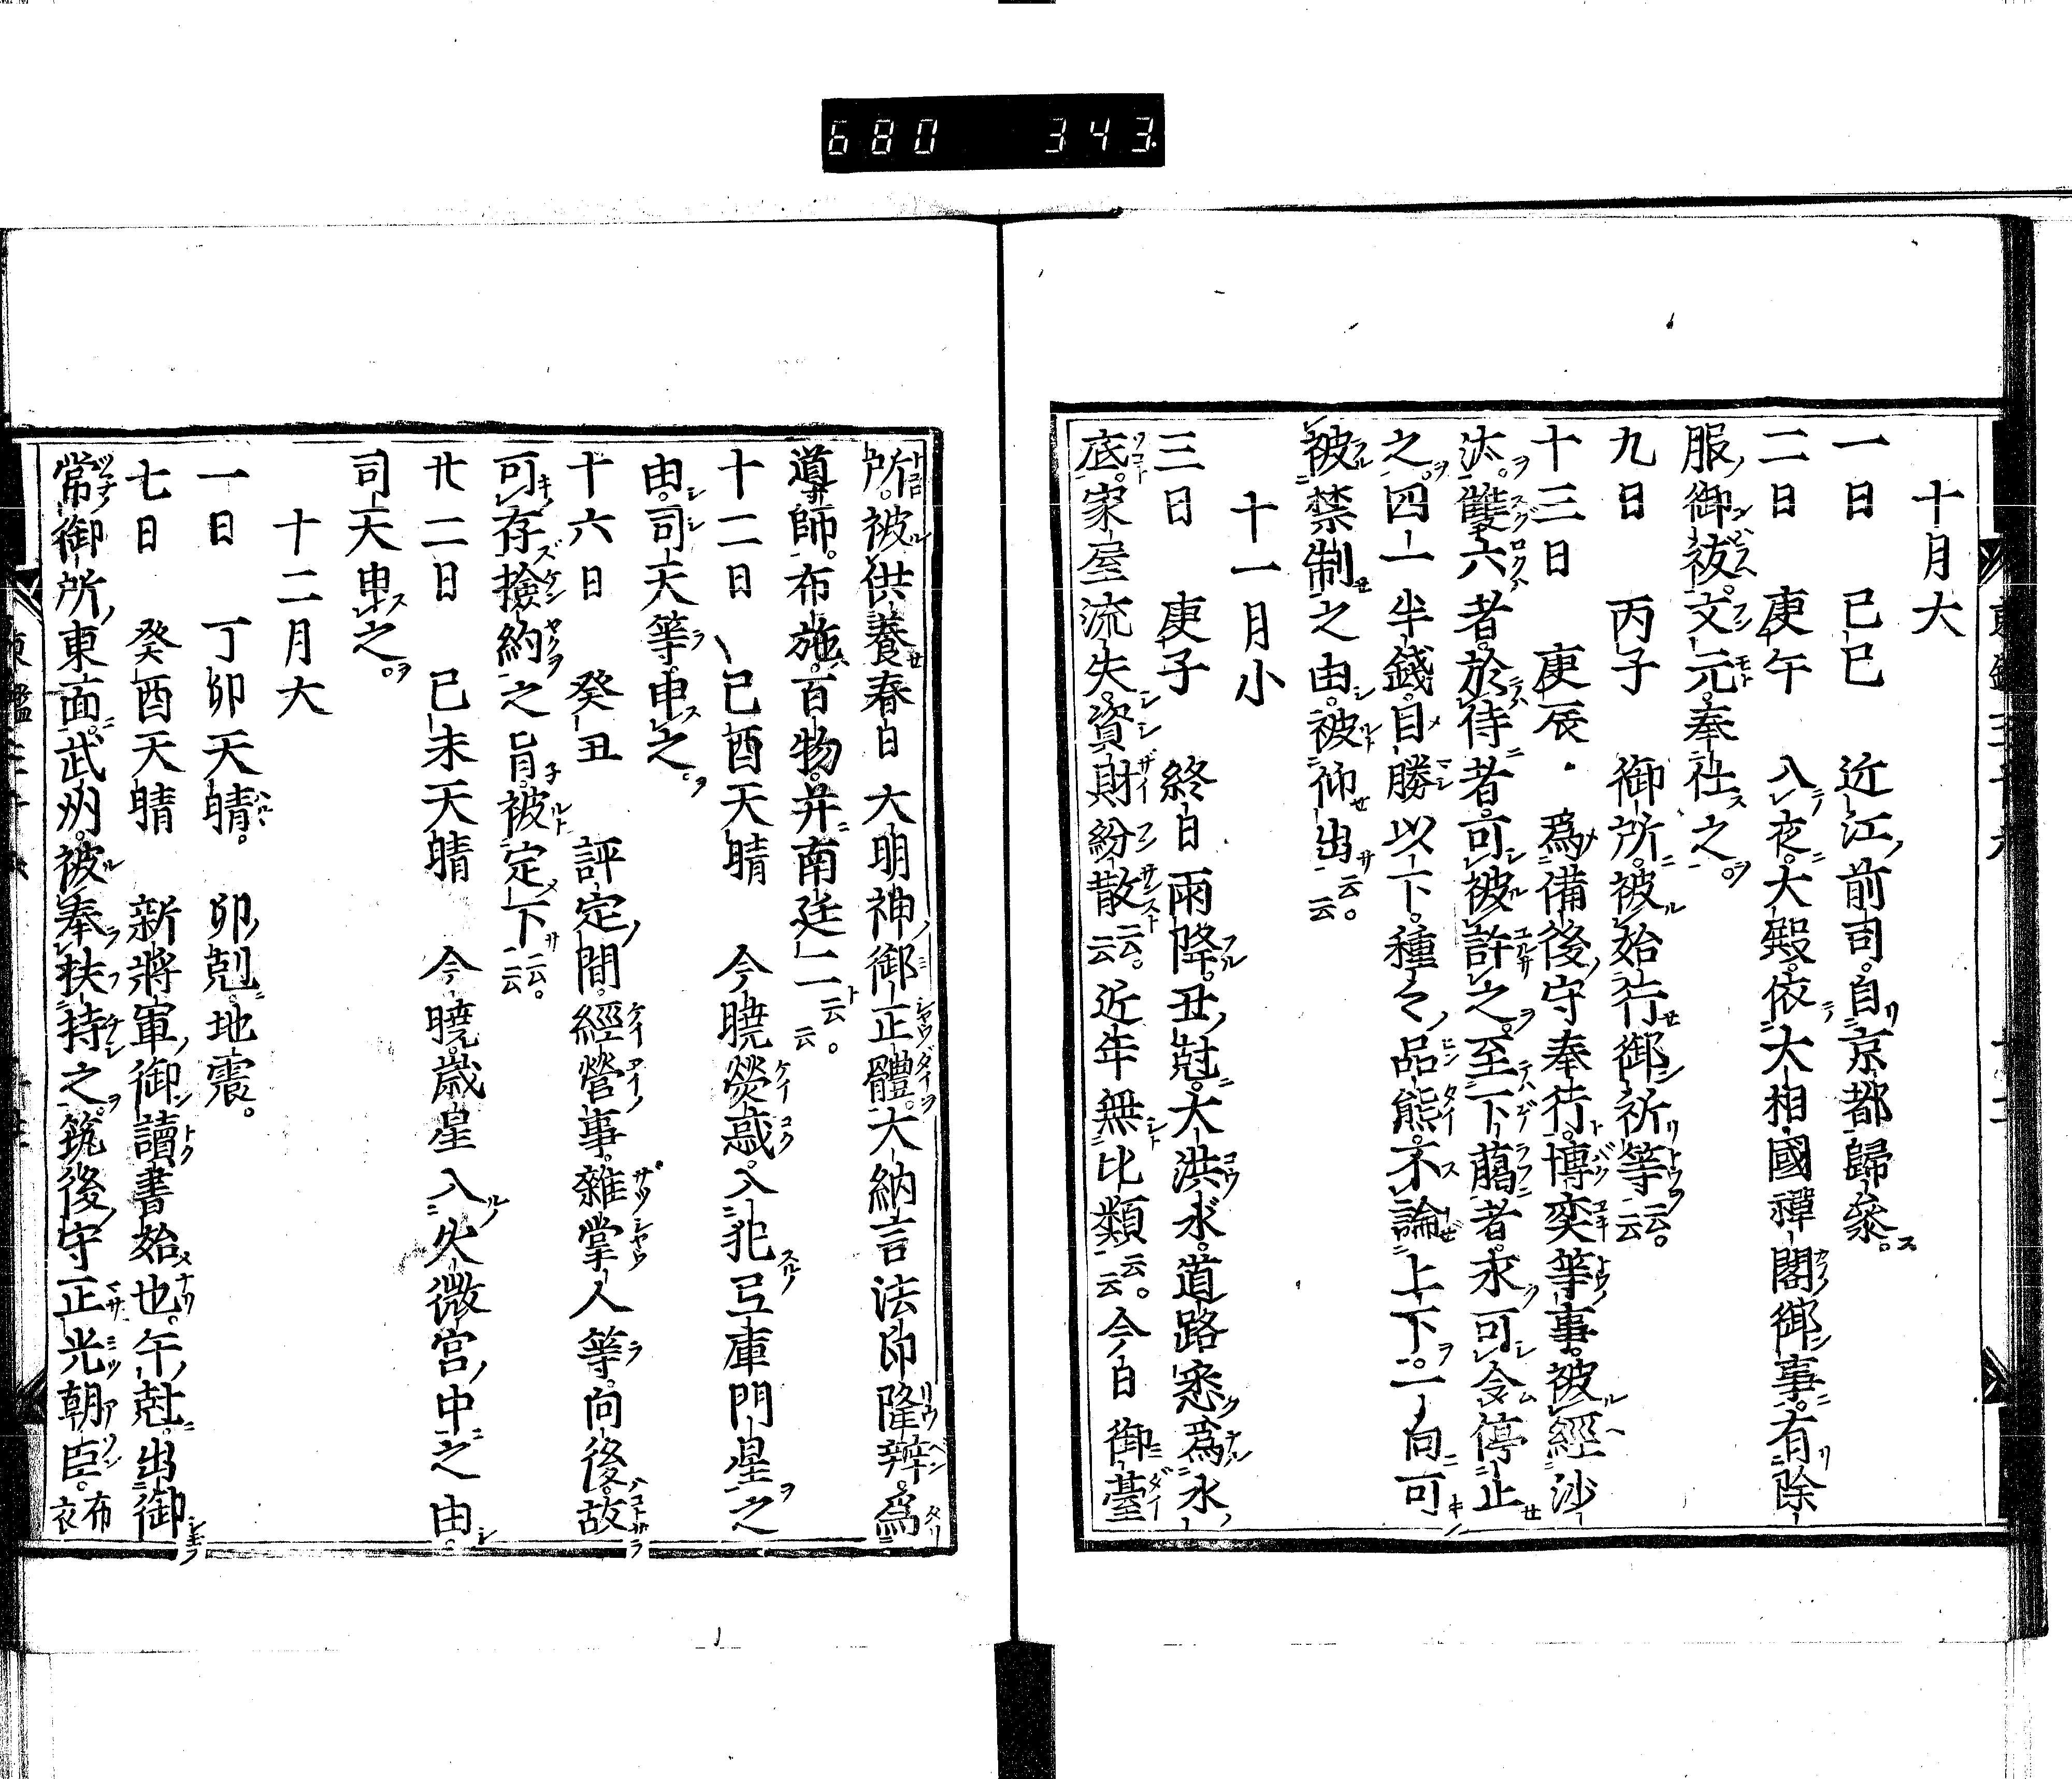 680 343.
十月大
一日 己巳 近江前司。自京都歸參。
二日 庚午 入夜。大殿。依大相國禪閤御事。有除
服御祓。文元。奉仕之。
九日 丙子 御所。被始行御祈等云云。
十三日 庚辰 爲備後守奉行。博奕等事。被經沙
汰。雙六者。於侍者。可被許之。至下﨟者。永可令停止
之。四一半錢。自勝以下。種々品態。不論上下。一向可
被禁制之由。被仰出云云。
十一月小
三日 庚子 終日雨降。丑尅。大洪水。道路悉爲水
底。家屋流失。資財紛散云云。近年無比類云云。今日御臺
所。被供養春日大明神御正體。大納言法印隆辨。爲
導師。布施。百物。并南廷二云云。
十二日 己酉天晴 今曉熒惑。入犯弖庫門星之
由。司天等。申之。
十六日 癸丑 評定間。經營事。雜掌人等。向後。故
可存撿約之旨。被定下云云。
廿二日 己未天晴 今曉。歲星入大微宮中之由。
司天申之。
十二月大
一日 丁卯天晴。 卯尅。地震。
七日 癸酉天晴 新將軍御讀書始也。午尅。出御
常御所東面。武州。被奉扶持之。筑後守正光朝臣。布衣